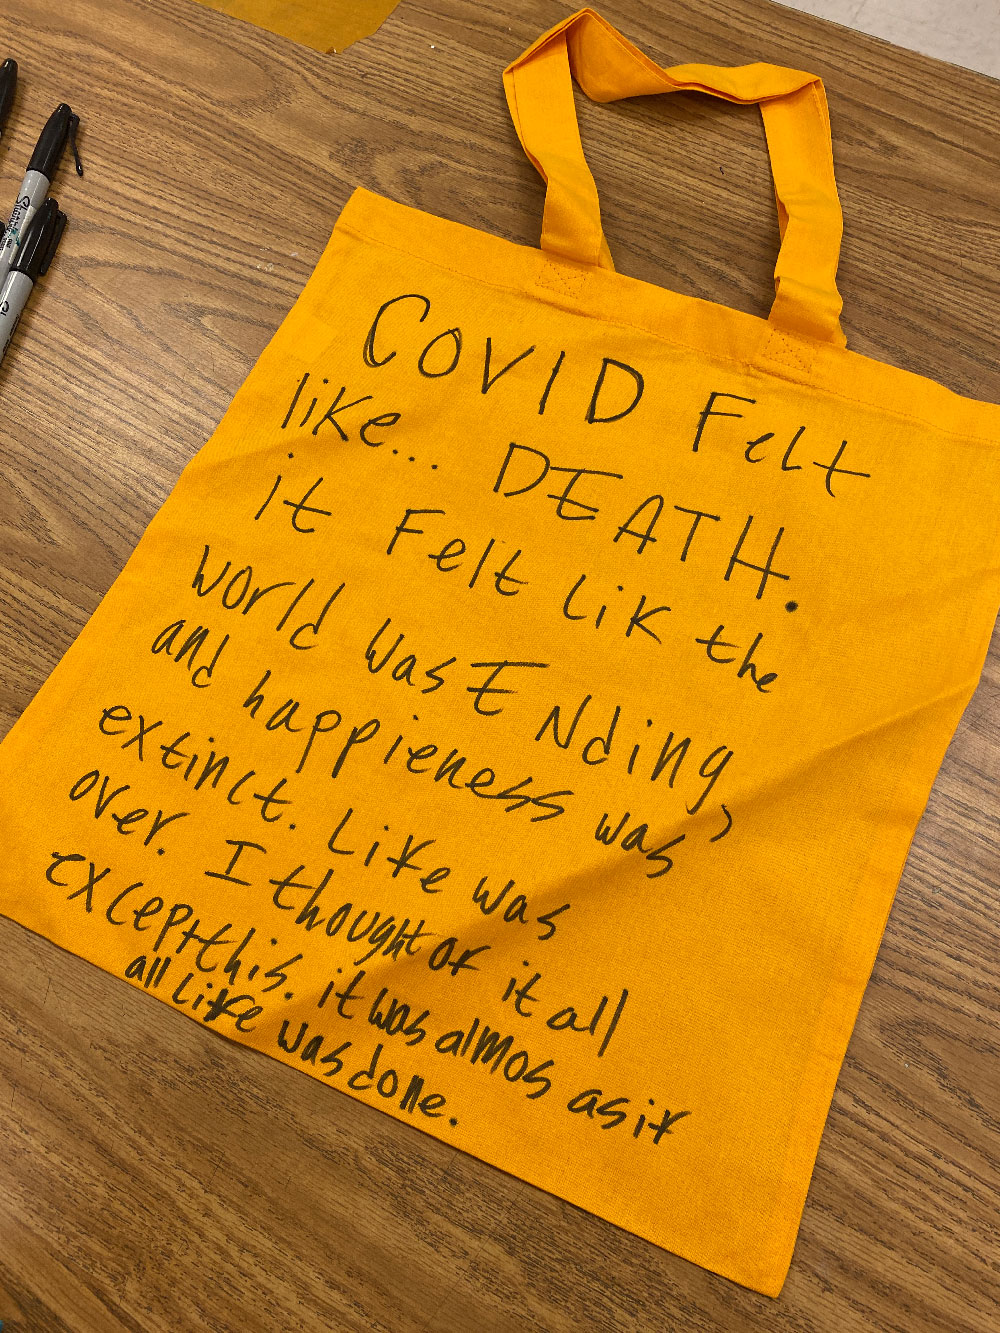 COVID Felt
like... DEATH.
it Felt Lik the
world was ENding,
and happieness was
extinct. Life was
over. I thought of it all
except this. it was almos as if
all Life was done.
Sharpie